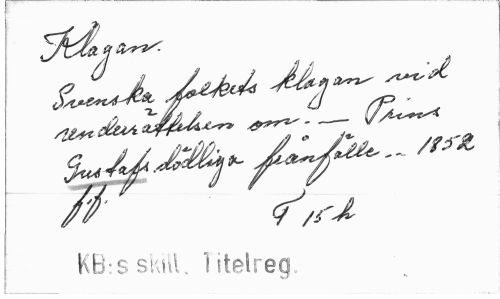 Klagan.
Svenska folkets klagan vid
underrättelsen om. — Prins
Gustafs dödliga frånfälle.. 1852
f.f. F 15 h
KB:s skill. Titelreg.